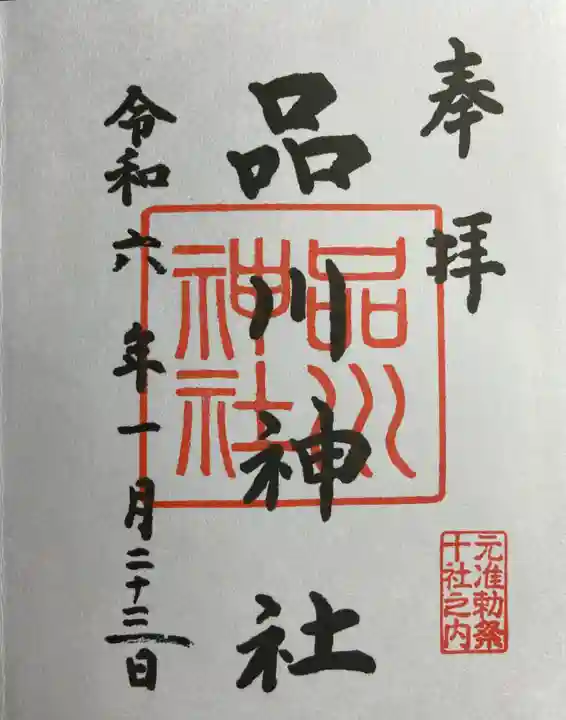 奉拝
品川神社
品川
神社
元准勅祭
十社之内
令和六年一月二十三日